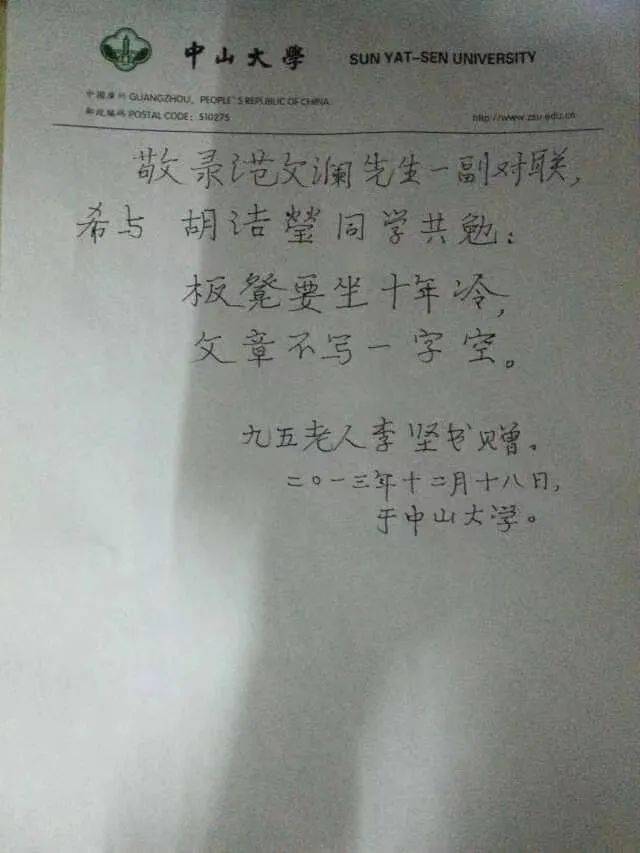 中山大學 SUN YAT-SEN UNIVERSITY
中国广州 GUANGZHOU, PEOPLE'S REPUBLIC OF CHINA
邮政编码 POSTAL CODE: 510275 http://www.zsu.edu.cn
敬录范文澜先生一副对联，
希与 胡洁莹同学共勉：
板凳要坐十年冷，
文章不写一字空。
九五老人李坚书赠。
二〇一三年十二月十八日，
于中山大学。